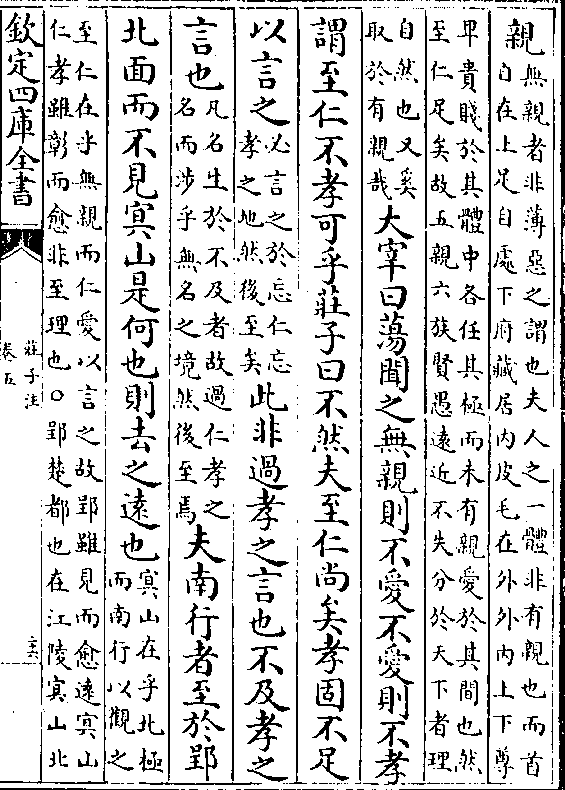 親無親者非薄惡之謂也夫人之一體非有親也而首
自在上足自處下府藏居內皮毛在外外內上下尊
卑貴賤於其體中各任其極而未有親愛於其間也然
至仁足矣故五親六族賢愚遠近不失分於天下者理
自然也又奚
取於有親哉大宰曰蕩聞之無親則不愛不愛則不孝
謂至仁不孝可乎莊子曰不然夫至仁尚矣孝固不足
以言之必言之於忘仁忘
孝之地然後至矣此非過孝之言也不及孝之
言也凡名生於不及者故過仁孝之
名而涉乎無名之境然後至焉夫南行者至於郢
北面而不見冥山是何也則去之遠也冥山在乎北極
而南行以觀之
至仁在乎無親而仁愛以言之故郢雖見而愈遠冥山
仁孝雖彰而愈非至理也○郢楚都也在江陵冥山北
欽定四庫全書
莊子注
卷五